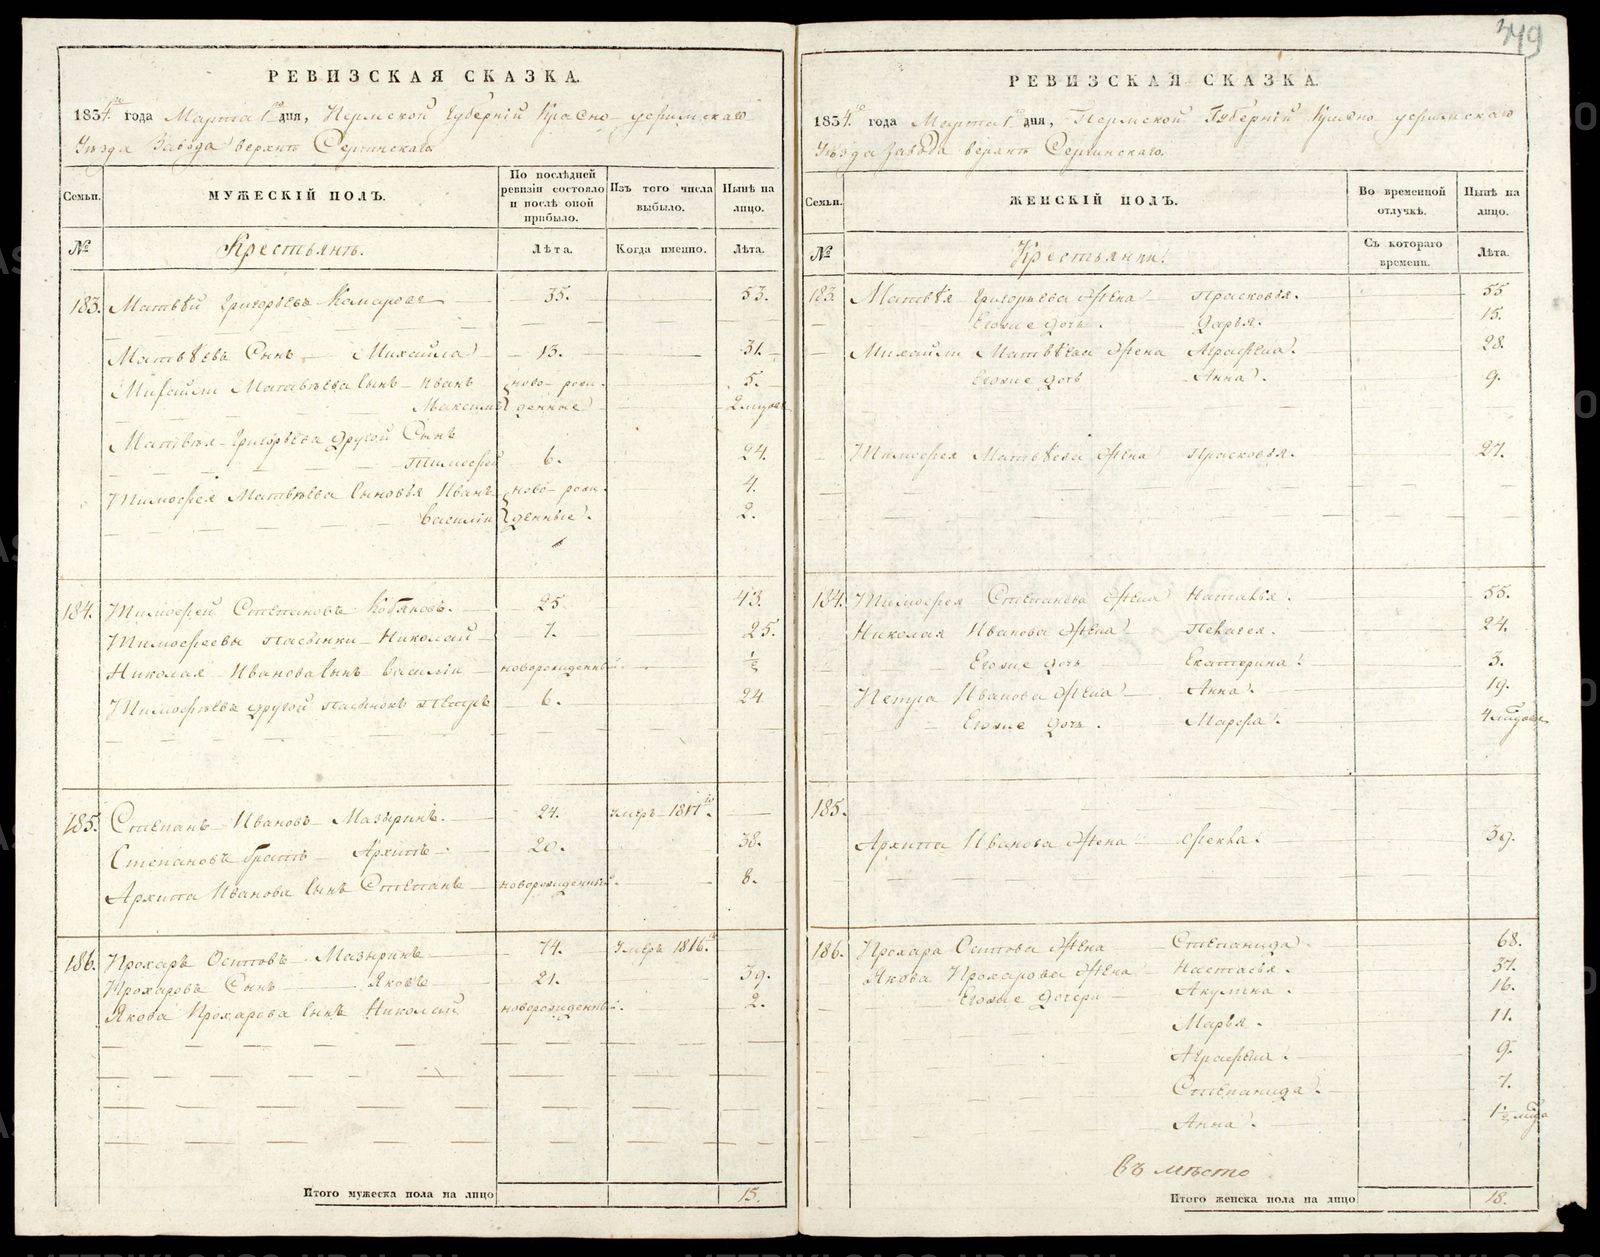 349
РЕВИЗСКАЯ СКАЗКА.
1834го года Марта 1го дня, Пермской Губернiй Красно-уфимскаго
Уѣзда Завода верхнъ Сергинскаго
Семьи.
МУЖЕСКIЙ ПОЛЪ.
По послѣдней ревизiи состояло и послѣ оной прибыло.
Изъ того числа выбыло.
Нынѣ на лицо.
№
Крестьянъ.
Лѣта.
Когда именно.
Лѣта.
183. Матвѣй Григорьевъ Комаровъ 35. 53.
Матвѣевъ Сынъ Михайла 13. 31.
Михайлы Матвѣева Сынъ Иванъ ново-рож- 5.
Максимъ денные 2 мѣсяц
Матвѣя Григорьева другой Сынъ
Тимофей 6. 24.
Тимофея Матвѣева Сыновья Иванъ ново-рож- 4.
Василiй денные. 2.
184. Тимофей Степановъ Кобяковъ. 25 43.
Тимофеевы пасынки Николай 7. 25.
Николая Иванова Сынъ Василiй новорожденный. ½
Тимофѣевъ другой пасынокъ Петръ 6. 24
185. Степанъ Ивановъ Мазыринъ. 24. Умеръ 1817го.
Степановъ братъ Архипъ 20. 38.
Архипа Иванова Сынъ Степанъ новорожденный. 8.
186. Прохаръ Осиповъ Мазыринъ 74. Умеръ 1816го
Прохаровъ Сынъ Яковъ 21. 39.
Якова Прохарова Сынъ Николай новорожденный. 2.
Итого мужеска пола на лицо 15.
РЕВИЗСКАЯ СКАЗКА.
1834го года Марта 1го дня, Пермской Губернiй Красно уфимскаго
Уѣзда Завода верхнъ Сергинскаго.
Семьи.
ЖЕНСКIЙ ПОЛЪ.
Во временной отлучкѣ.
Нынѣ на лицо.
№
Крестьянки.
Съ котораго времени.
Лѣта.
183. Матвѣя Григорьева Жена Прасковья. 55
Егоже дочь. Дарья. 15.
Михайлы Матвѣева Жена Аграфена. 28.
Егоже дочь Анна. 9.
Тимофея Матвѣева Жена Прасковья. 27.
184. Тимофея Степанова Жена Наталья. 55.
Николая Иванова Жена Пелагея. 24.
Егоже дочь Екатерина. 3.
Петра Иванова Жена Анна. 19.
Егоже дочь. Марфа. 4 мѣсяц
185.
Архипа Иванова Жена Фекла. 39.
186. Прохара Осипова Жена Степанида. 68.
Якова Прохарова Жена Настасья. 37.
Егоже дочери Акулина. 16.
Марья. 11.
Аграфена. 9.
Степанида. 7.
Анна. 1½ мѣся
въ мѣсто
Итого женска пола на лицо 18.